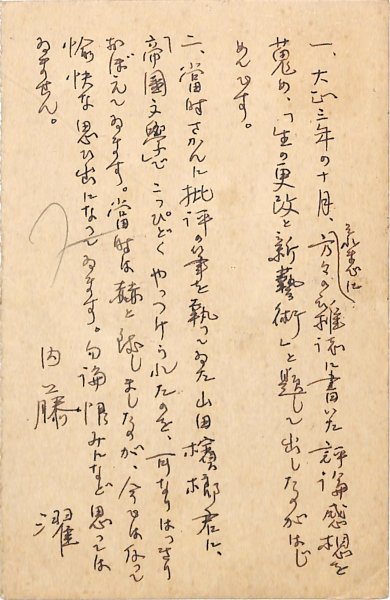 一、大正三年の十月、方々の雑誌に書いた評論感想を
蒐め、「生の更改と新藝術」と題して出したのがはじ
めです。
二、當時さかんに批評の筆を執つてゐた山田檳榔君に、
「帝國文學」でこつぴどくやつつけられたのを、可なりはつきり
おぼえてゐます。當時は赫と致しましたのが、今ではなつて
愉快な思ひ出になつてゐます。勿論恨みんなど思つては
ゐません。
内藤 濯